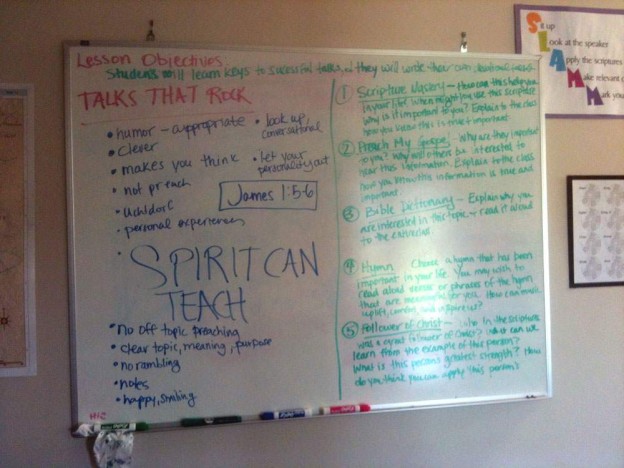 Lesson Objectives
Students will learn keys to sucessful talks, and they will write their own devotional talks
TALKS THAT ROCK
• humor – appropriate
• clever
• makes you think
• not preach
• Uchtdorf
• personal experiences
• look up, conversational
• let your personality out
James 1:5-6
SPIRIT CAN
TEACH
• no off topic preaching
• clear topic, meaning, purpose
• no rambling
• notes
• happy, smiling
① Scripture Mastery – How can this help you
in your life? When might you use this scripture
Why is it important to you? Explain to the class
how you know this is true & important
② Preach My Gospel – Why are they important
to you? Why will others be interested to
hear this information. Explain to the class
how you know this information is true and
important.
③ Bible Dictionary – Explain why you
are interested in this topic & read it aloud
to the
④ Hymn Choose a hymn that has been
important in your life. You may wish to
read aloud verses or phrases of the hymn
that are meaningful to you. How can music
uplift, comfort, and inspire us?
⑤ Follower of Christ – Who in the scriptures
was a great follower of Christ? What can we
learn from the example of this person?
What is this person's greatest strength? How
do you think you can apply this person's
Sit up
Look at the speaker
Apply the scriptures
Make relevant
Mark you